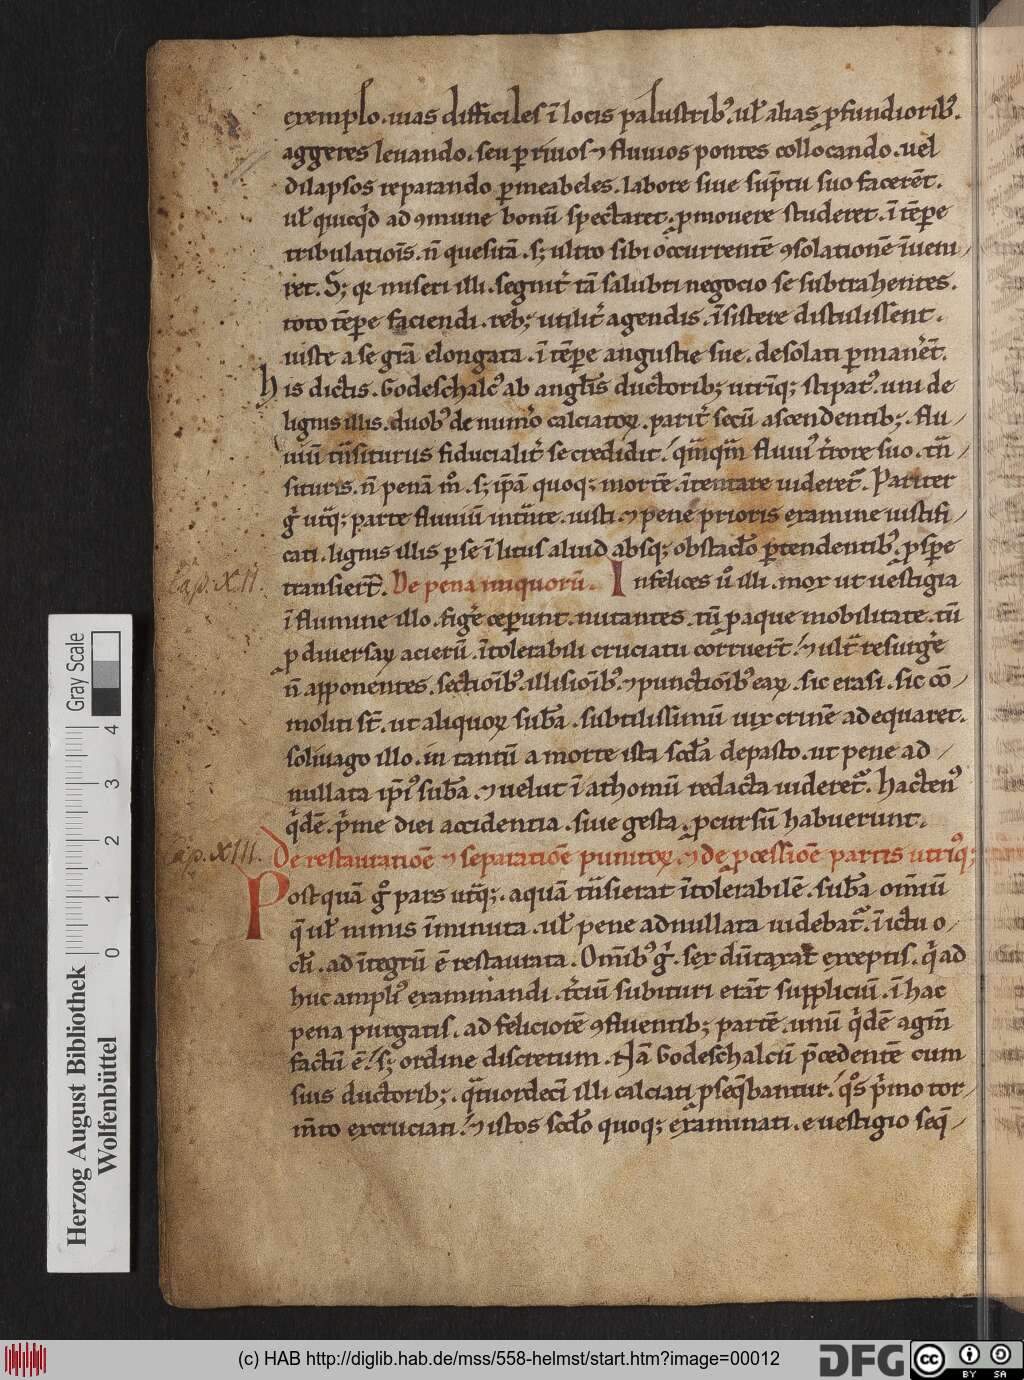 exemplo. uias difficiles ī locis palustrib⁹. ul' alias ꝓfundiorib⁹.
aggeres leuando. seu ꝑ riuos ⁊ fluuios pontes collocando. uel
dilapsos reparando ꝑmeabeles. labore siue sūptu suo facerēt.
ul' quicq̇d ad ꝯmune bonū spectaret. ꝓmouere studeret. ī tēꝑe
tribulatioīs. n̄ quesitā. s; ultro sibi occurrentē ꝯsolationē īueni
ret. S; qr miseri illi. segnit' tā salubri negocio se subtrahentes.
toto tēꝑe faciendi. reb; utilit' agendis. īsistere distulissent.
iuste a se grā elongata. ī tēꝑe angustie sue. desolati ꝑmanēr̄t.
his dictis. Godeschalc⁹ ab angl'is ductorib; utrīq; stipat⁹. uni de
lignis illis. duob⁹ de num'o calciatoꝝ. parit' secū ascendentib;. flu/
uiū trāsiturus fiducialit' se credidit. q̄mq̄m fluui⁹ t'rore suo. trā/
situris. n̄ penā m°. s; ip̄am quoq; mortē. ītentare uideret'. Pariter
g' utq̄; parte fluuiū intuente. iusti ⁊ pene prioris examine iustifi/
cati. lignis illis ꝑ se ī litus aliud absq; obstac'lo ꝑtendentib⁹. ꝓsꝑe
transier̄t. De pena iniquorū. Infelices ū illi. mox ut uestigia
ī flumine illo. fig'e ceꝑunt. nutantes. tū ꝓ aque mobilitate. tū
ꝓ diuersaꝝ acierū. ītolerabili cruciatu corruer̄t. ⁊ ult̄ resurg'e
n̄ apponentes. sectioīb⁹. illisioīb⁹. ⁊ punctioīb⁹ eaꝝ. sic erasi. sic cō/
moliti st̄. ut aliquoꝝ sub̄a. subtilissimū uix crinē adequaret.
soliuago illo. in tantū a morte ista sc̄da depasto. ut pene ad/
nullata ip̄i⁹ sub̄a. ⁊ uelut ī athomū redacta uideret'. hacten⁹
q̇dē. p'me diei accidentia. siue gesta. ꝓcursū habuerunt.
Cap. XII.
Cap. XIII.
De restauratioē ⁊ separatioē punitoꝝ. ⁊ de ꝓcessioē partis utriq⁹;
Postquā g° pars utq̄;. aquā trāsierat ītolerabilē. sub̄a om̄iū
q̄ ul' nimis īminuta. ul' pene adnullata uidebat'. ī ictu o/
cl'i. ad ītegrū ē restaurata. Om̄ib⁹ g'. sex dūtaxat exceptis. q' ad
huc ampli⁹ examinandi. t'ciū subituri erāt suppliciū. ī hac
pena purgatis. ad feliciorē ꝯfluentib; partē. unū q̇dē agm̄
factū ē. s; ordine discretum. Nā Godeschalcū p̄cedentē cum
suis ductorib;. q̄tuordecī illi calciati ꝓseq̄bantur. q°s p'mo tor/
m̄to excruciati. ⁊ istos sc̄do quoq; examinati. e uestigio seq̄/
Herzog August Bibliothek
Wolfenbüttel
Gray Scale
0 1 2 3 4
(c) HAB http://diglib.hab.de/mss/558-helmst/start.htm?image=00012
DFG
cc
BY SA